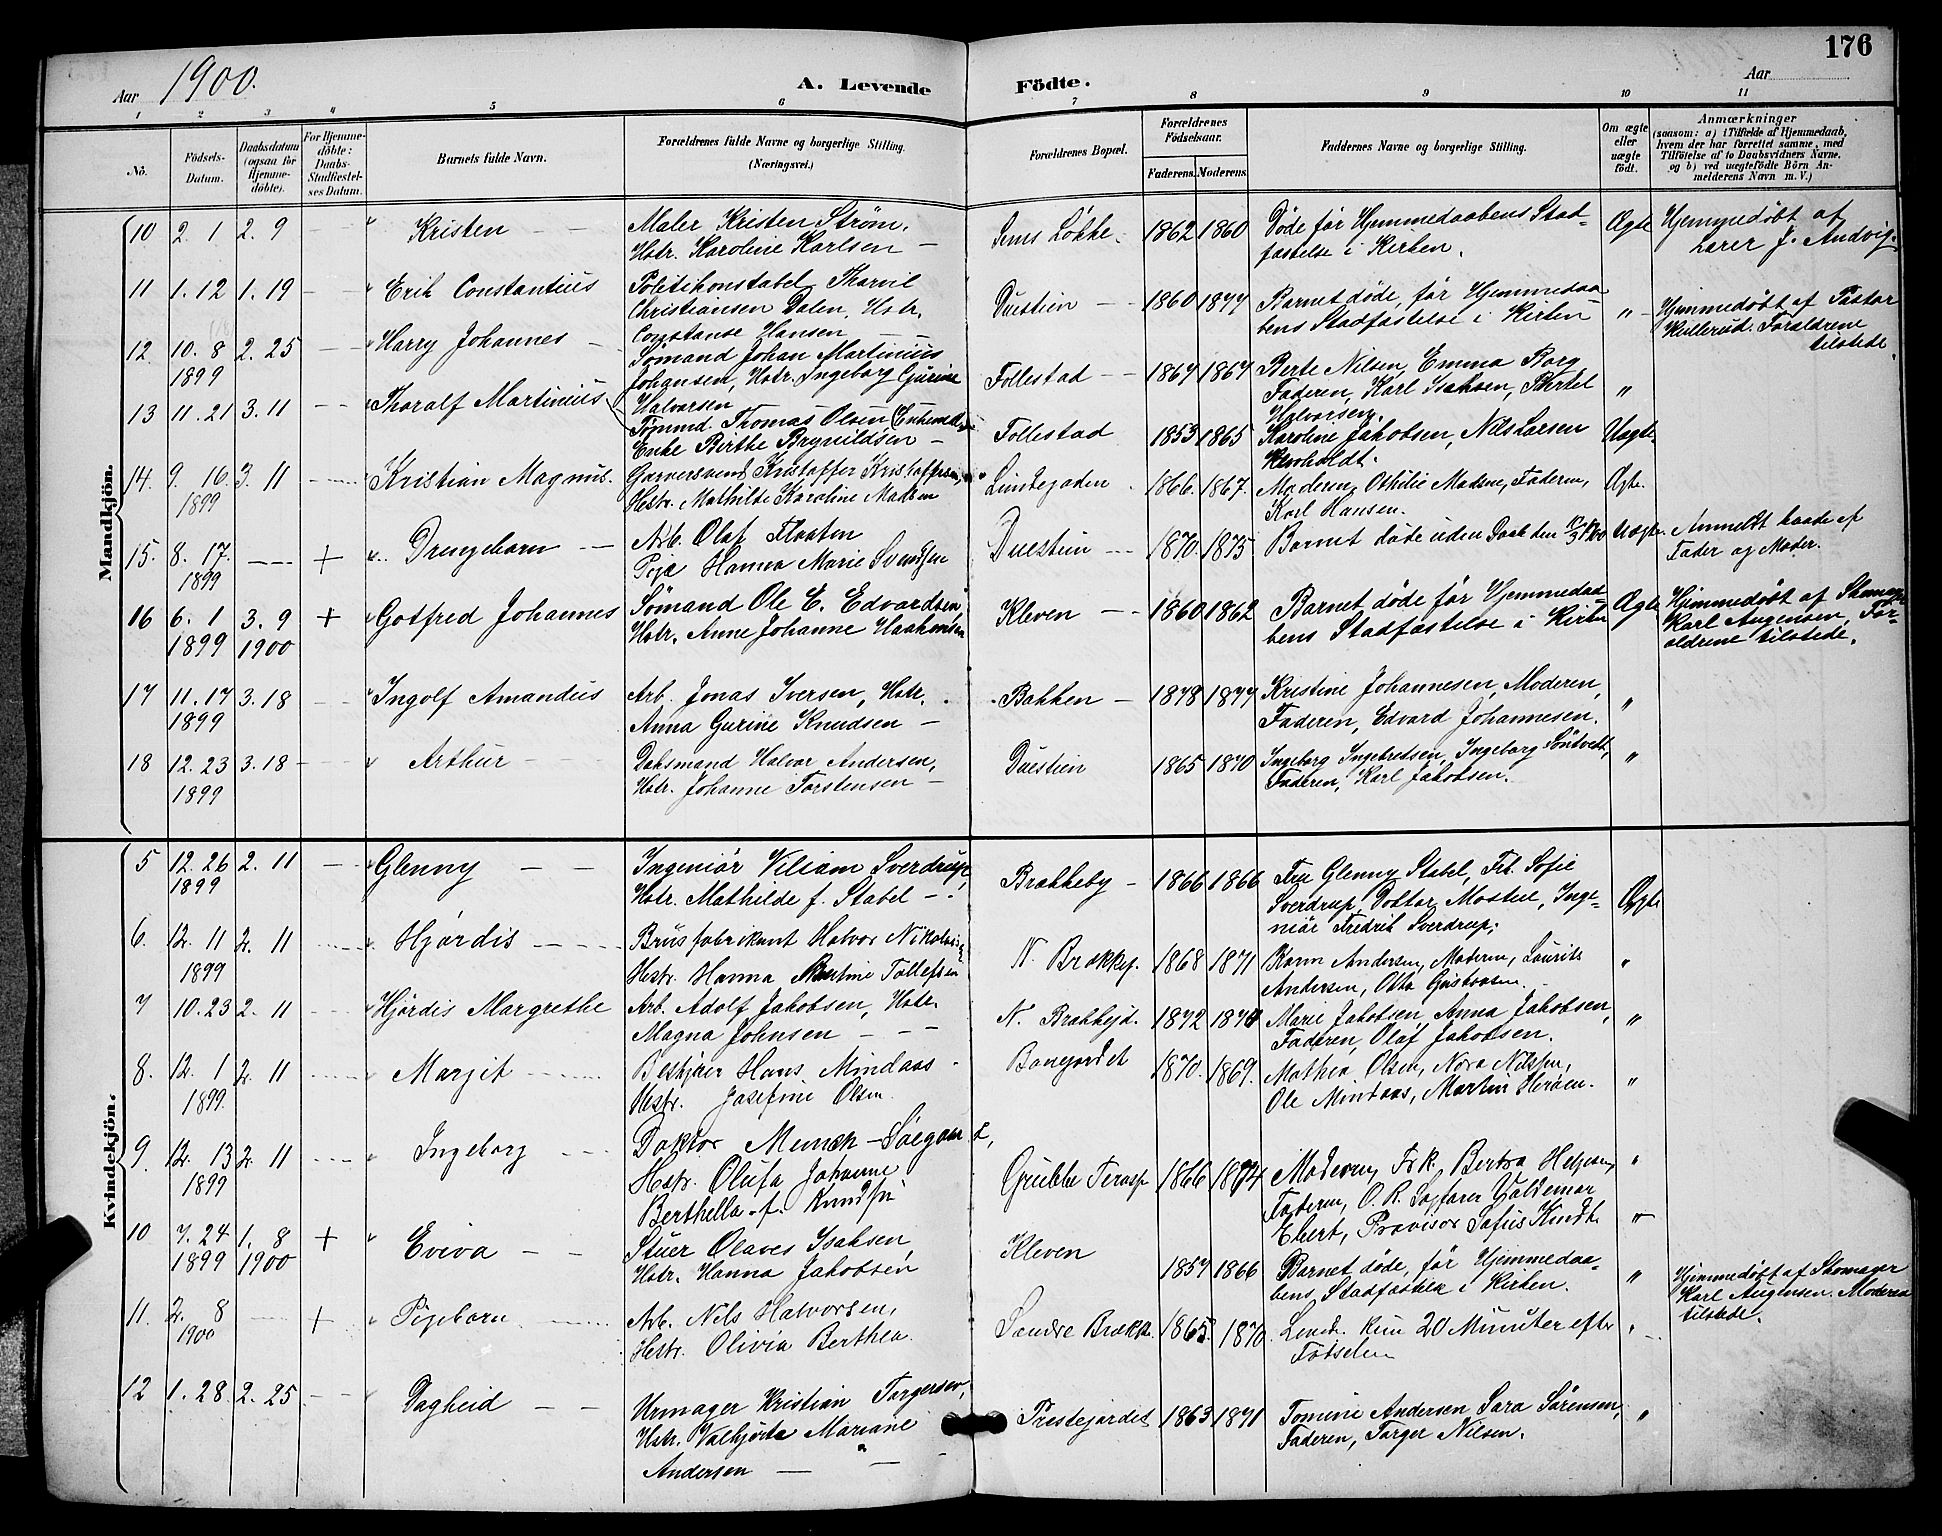 176
Aar 1900. A. Levende Födte. Aar
1 2 3 4 5 6 7 8 9 10 11
No. Födsels-Datum. Daabsdatum (ogsaa for Hjemmedöbte). For Hjemmedöbte: Daabs-Stadfæstelses Datum. Barnets fulde Navn. Forældrenes fulde Navne og borgerlige Stilling. (Næringsvei.) Forældrenes Bopæl. Forældrenes Födselsaar. Faderens. Moderens. Faddernes Navne og borgerlige Stilling. Om ægte eller uægte födt. Anmærkninger (saasom: a) i Tilfælde af Hjemmedaab, hvem der har forrettet samme, med Tilföielse af to Daabsvidners Navne, og b) ved uægtefödte Börn Anmelderens Navn m. V.)
Mandkjön.
10 2. 1 2. 9 " Kristen Maler Kristen Strøm, Jens Løkke. 1862 1860 Døde før Hjemmedaabens Stad- Ægte Hjemmedøbt af
Hstr. Karoline Karlsen fæstelse i Kirken. Lærer J. Andvig.
11 1. 12 1. 19 " Erik Constantius Politikonstabel Tharvil Duestien 1860 1877 Barnet døde, før Hjemmedaa- " Hjemmedøbt af Pastor
Christiansen Dalen, Hstr. bens Stadfæstelse i Kirken Killerud. Forældrene
Constanse Hansen tilstede.
12. 10. 8 2. 25 " Harry Johannes Sømand Johan Martinius Follestad 1867 1867 Berte Nilsen, Emma Borg,
1899 Johansen, Hstr. Ingeborg Gurine Faderen, Karl Isaksen, Bertel "
Halvorsen Halvorsen.
13 11. 21 3. 11 " Thoralf Martinius Tømmd Thomas Olsen (Enkemd) Follestad 1853 1865 Karoline Jakobsen, Nils Larsen Uægte
Enke Birthe Brynildsen
14. 9. 16. 3. 11 " Kristian Magnus. Garversvend Kristoffer Kristoffersen, 1866. 1867. Moderen, Othilie Madsen, Faderen, Ægte.
1899 Hstr. Mathilde Karoline Madsen Karl Hansen.
15. 8. 17. + " Drengebarn Arb. Olaf Floaten Duestien 1870. 1875 Barnet døde uden Daab den Uægte. Anmeldt baade af
1899 Pige Hanna Marie Svendsen Fader og Moder.
16 6. 1 3. 9 + " Gotfred Johannes Sømand Ole E. Edvardsen, Kleven 1860 1862 Barnet døde før Hjemmedaa- Ægte Hjemmedøbt af Skomager
1899 1900 Hstr. Anne Johanne Haakonsen bens Stadfæstelse i Kirken Karl Augensen, For-
ældrene tilstede.
17 11. 17 3. 18 " Ingolf Amandus Arb. Jonas Iversen, Hstr. Bakken 1878 1877 Kristine Johannesen, Moderen, "
1899 Anna Gurine Knudsen Faderen, Edvard Johannesen.
18 12. 23 3. 18 " Arthur Halvor Andersen, Duestien 1865 1870 Ingeborg Ingebretsen, Ingeborg Søntvedt, "
1899 Hstr. Johanne Torstensen Faderen, Karl Jakobsen.
Kvindekjön.
5 12. 26 2. 11 " Glenny Ingeniör Viliam Sverdrup, Brækkeby 1866 1866 Fru Glenny Stabel, Frk. Sofie Ægte
1899 Hstr. Mathilde f. Stabel Sverdrup, Doktor Inge-
niör Fredrik Sverdrup,
6. 12. 11 2. 11 " Hjørdis Brusfabrikant Halvor Nikolaisen N. Brækkej. 1868 1871 Karen Andersen, Moderen, Laurits "
1899 Hstr. Hanna Tollefsen Andersen, Otto Gustavsen.
7 10. 23 2. 11 " Hjørdis Margrethe Arb. Adolf Jakobsen, Hstr. N. Brækkejd. 1872 Marie Jakobsen Anna Jakobsen, "
Magna Johnsen Faderen, Olaf Jakobsen.
8. 12. 1 2. 11 " Margit Hans Mindaas Bangjordet 1870. 1869. Mathea Olsen, Nora Nilsen, "
1899. Hstr. Josefine Olsen Ole Mindaas, Martin
9. 12. 13 2. 11 " Ingeborg Doktor Munch-Søegaard, Grubbe Terasse 1866 1874 Moderen, Frk. Bertra "
1899 Hstr. Olufa Johanne Faderen, O. R. Sagfører Valdemar
Berthella f. Knudsen Ebert, Provisor Sofus Kindt "
10 7. 24 1. 8 + " Eviva Stuer Olaves Isaksen, Kleven 1857 1866 Barnet døde, før Hjemmedaa- " Hjemmedøbt af Skomager
1899 1900 Hstr. Hanna Jakobsen bens Stadfæstelse i Kirken. Karl Augensen. Moderen
tilstede.
11. 2. 8 + " Pigebarn Arb. Nils Halvorsen, Søndre Brække 1865. 1870. Levde kun 20 Minuter efter "
1900 Hstr. Olivia Berthea. Fødselen
12 1. 28 2. 25 " Dagheid Urmager Kristian Torgersen, Prestejordet 1863 1871 Tomine Andersen Sara Sørensen, "
Hstr. Valkjørte Mariane Faderen, Torger Nilsen.
Andersen